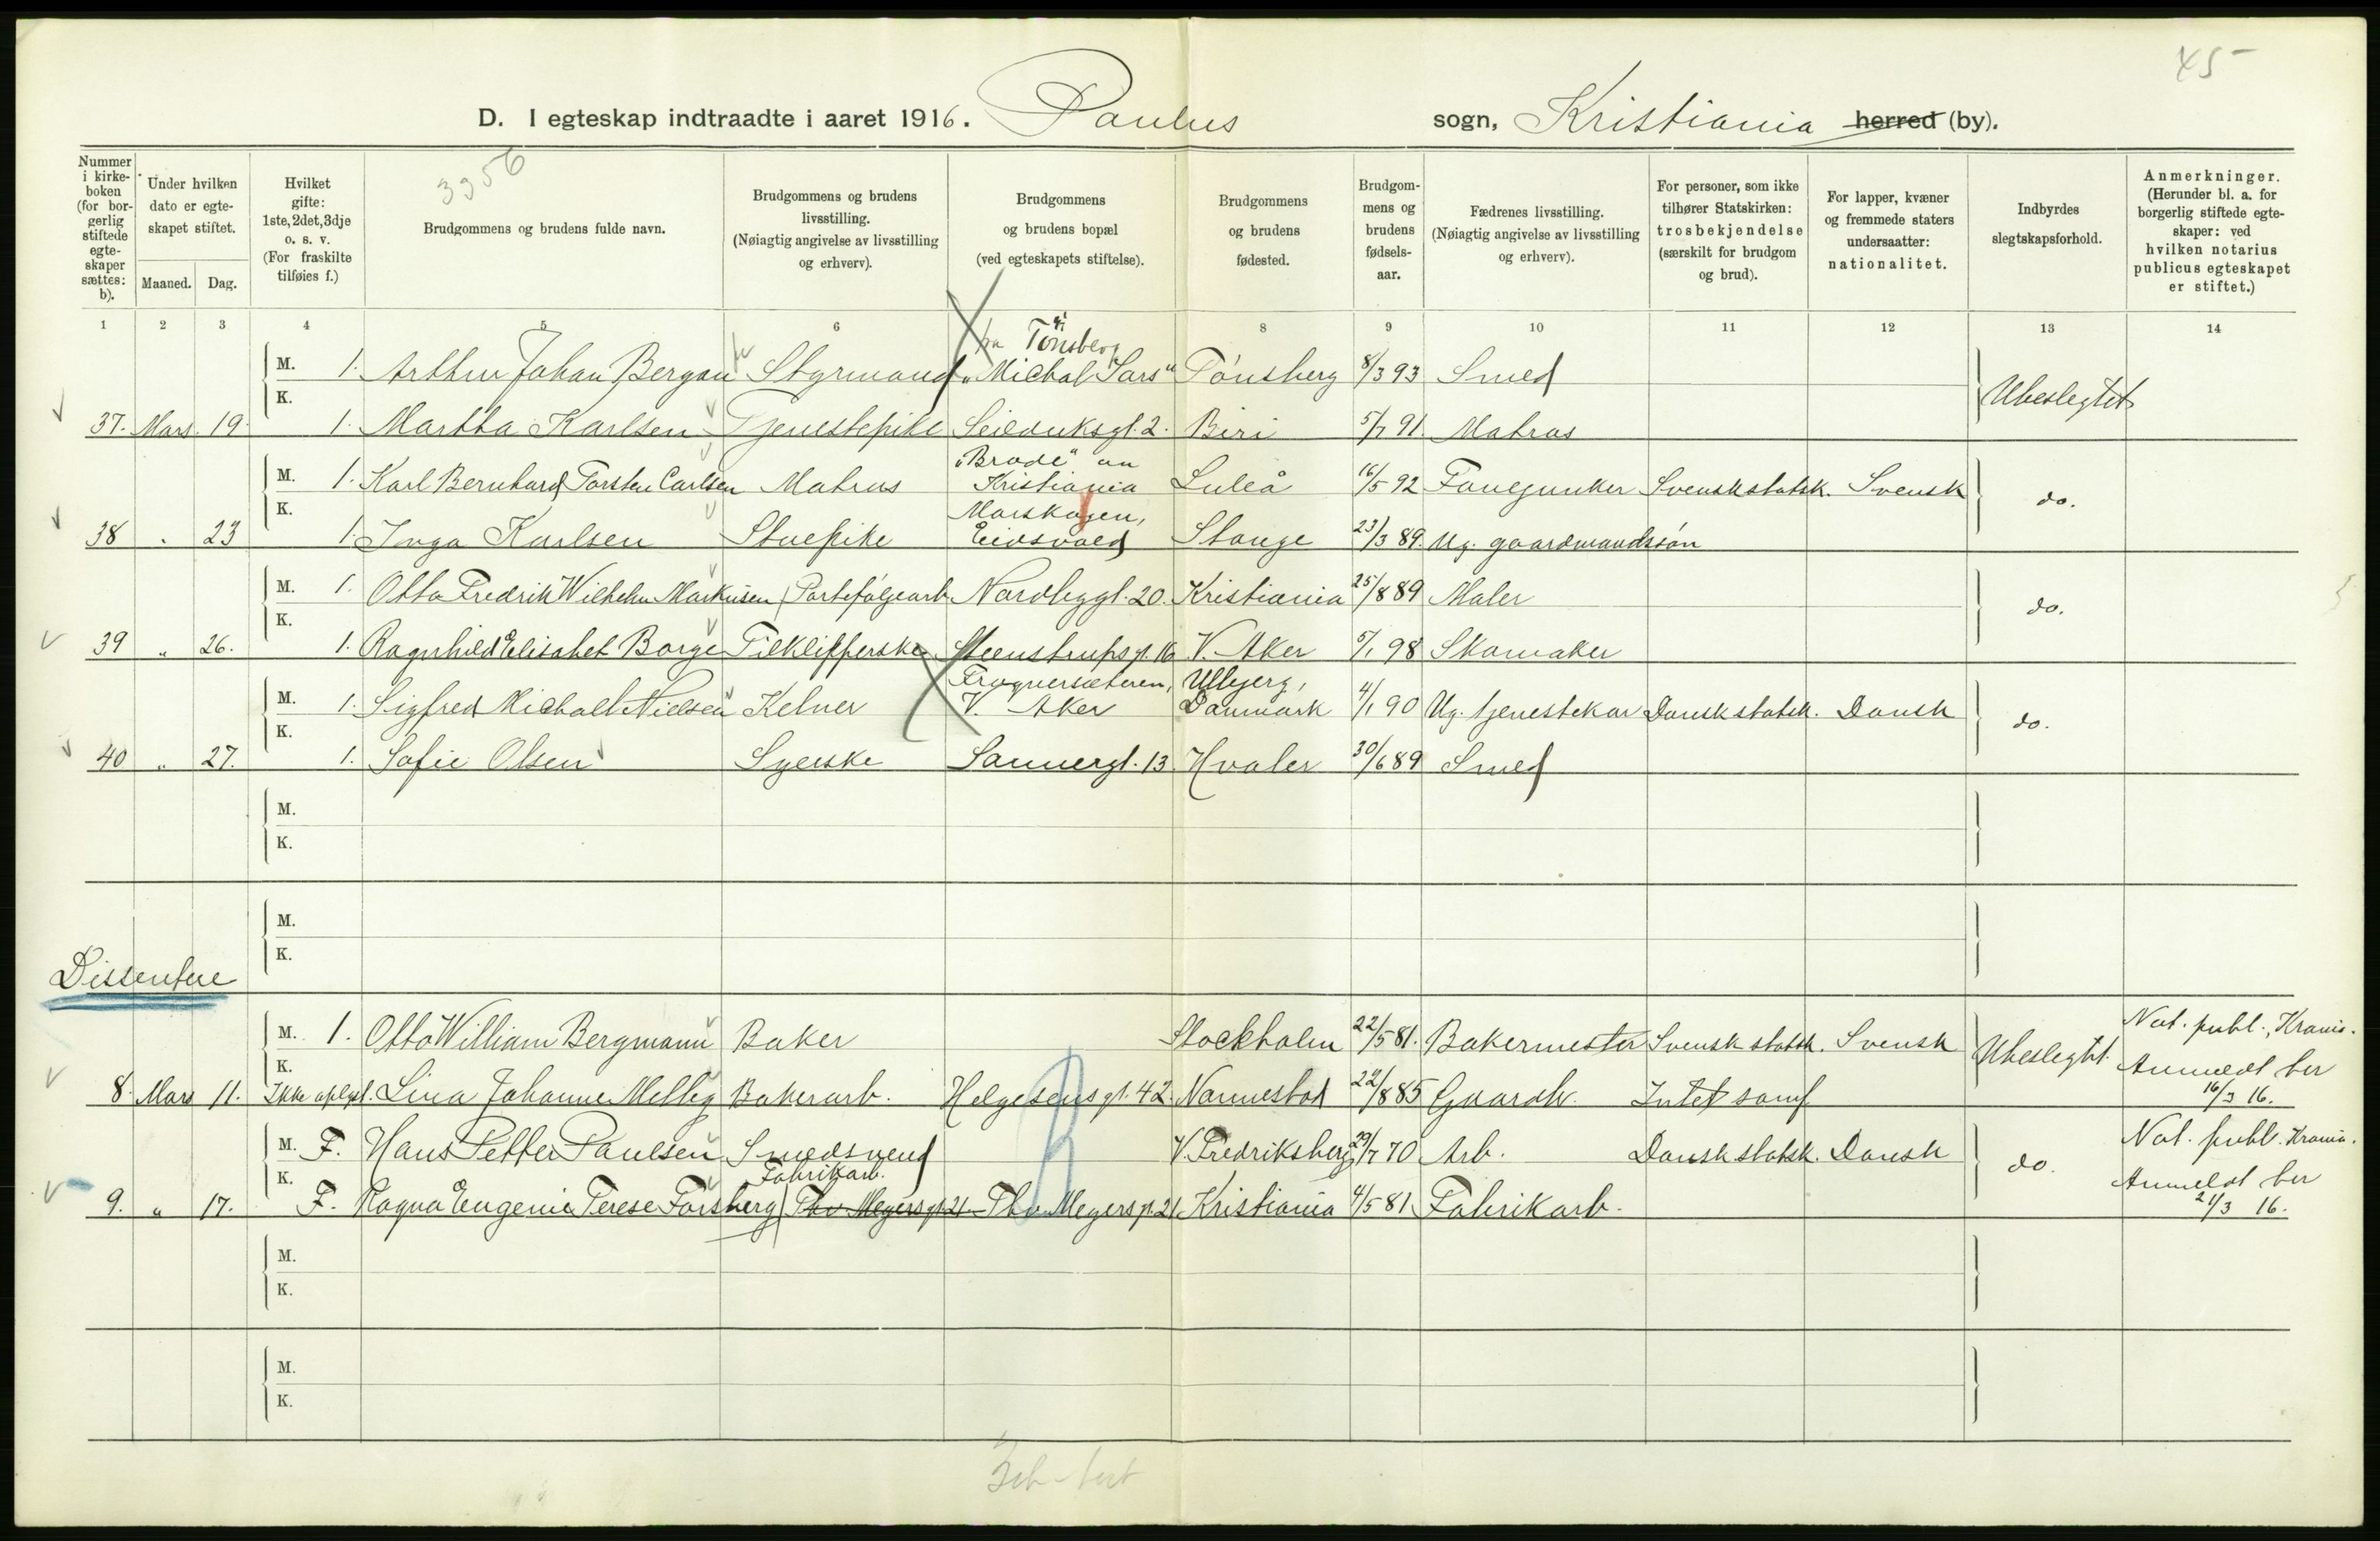 45
D. I egteskap indtraadte i aaret 1916. Paulus sogn, Kristiania herred (by).
3356
Nummer i kirke-boken (for bor-gerlig stiftede egte-skaper sættes: b).
Under hvilken dato er egte-skapet stiftet.
Maaned. Dag.
Hvilket gifte: 1ste, 2det, 3dje o. s. v. (For fraskilte tilføies f.)
Brudgommens og brudens fulde navn.
Brudgommens og brudens livsstilling. (Nøiagtig angivelse av livsstilling og erhverv).
Brudgommens og brudens bopæl (ved egteskapets stiftelse).
Brudgommens og brudens fødested.
Brudgom-mens og brudens fødsels-aar.
Fædrenes livsstilling. (Nøiagtig angivelse av livsstilling og erhverv).
For personer, som ikke tilhører Statskirken: trosbekjendelse (særskilt for brudgom og brud).
For lapper, kvæner og fremmede staters undersaatter: nationalitet.
Indbyrdes slegtskapsforhold.
Anmerkninger. (Herunder bl. a. for borgerlig stiftede egte-skaper: ved hvilken notarius publicus egteskapet er stiftet.)
1 2 3 4 5 6 8 9 10 11 12 13 14
fra Tönsberg
M. 1. Arthur Johan Bergan Styrmand "Michal Sars" Tönsberg 8/3 93 Smed Ubeslegtet
K.
37. Mars 19. 1. Martha Karlsen Tjenestepike Seilduksgt. 2. Biri 5/7 91. Matros
"Brode" av
M. 1. Karl Bernhard Torsten Carlsen Matros Kristiania Luleå 16/5 92 Fanejunker Svensk statsk. Svensk do.
K. Morskogen,
38 " 23 1. Inga Karlsen Stuepike Eidsvold Stange 23/3 89. Ug. gaardmandssön
M. 1. Otto Fredrik Wilhelm Markusen Porteföljearb. Nordbygt. 20. Kristiania 25/8 89 Maler do.
K.
39 " 26. 1. Ragnhild Elisabet Borge Tilklipperske Steenstrupsgt. 16 V. Aker 5/1 98 Skomaker
Frognersæteren, Ulbjerg,
M. 1. Sigfred Michael Nielsen Kelner V. Aker Danmark 4/1 90 Ug. tjenestekar Dansk statsk. Dansk do.
K.
40 " 27. 1. Sofie Olsen Syerske Sannergt. 13 Hvaler 30/6 89 Smed
M.
K.
M.
K.
Dissentere
M. 1. Otto William Bergmann Baker Stockholm 22/5 81. Bakermester Svensk statsk. Svensk Ubeslegtet. Not. publ., Krania.
K. Anmeldt her
8. Mars 11. Ikke oplyst. Lina Johanne Melby Bakerarb. Helgesens gt. 42. Nannestad 22/8 85 Gaardbr. Intet samf 16/3 16.
M. F. Hans Petter Paulsen Smedsvend V. Fredriksberg 29/7 70 Arb. Dansk statsk. Dansk do. Not. publ. Krania.
K. Fabrikarb. Anmeldt her
9. " 17. F. Ragna Eugenie Terese Forsberg Thv. Meyersgt. 21. Thv. Meyersgt. 21 Kristiania 4/5 81 Fabrikarb. 21/3 16.
M.
K.
M.
K.